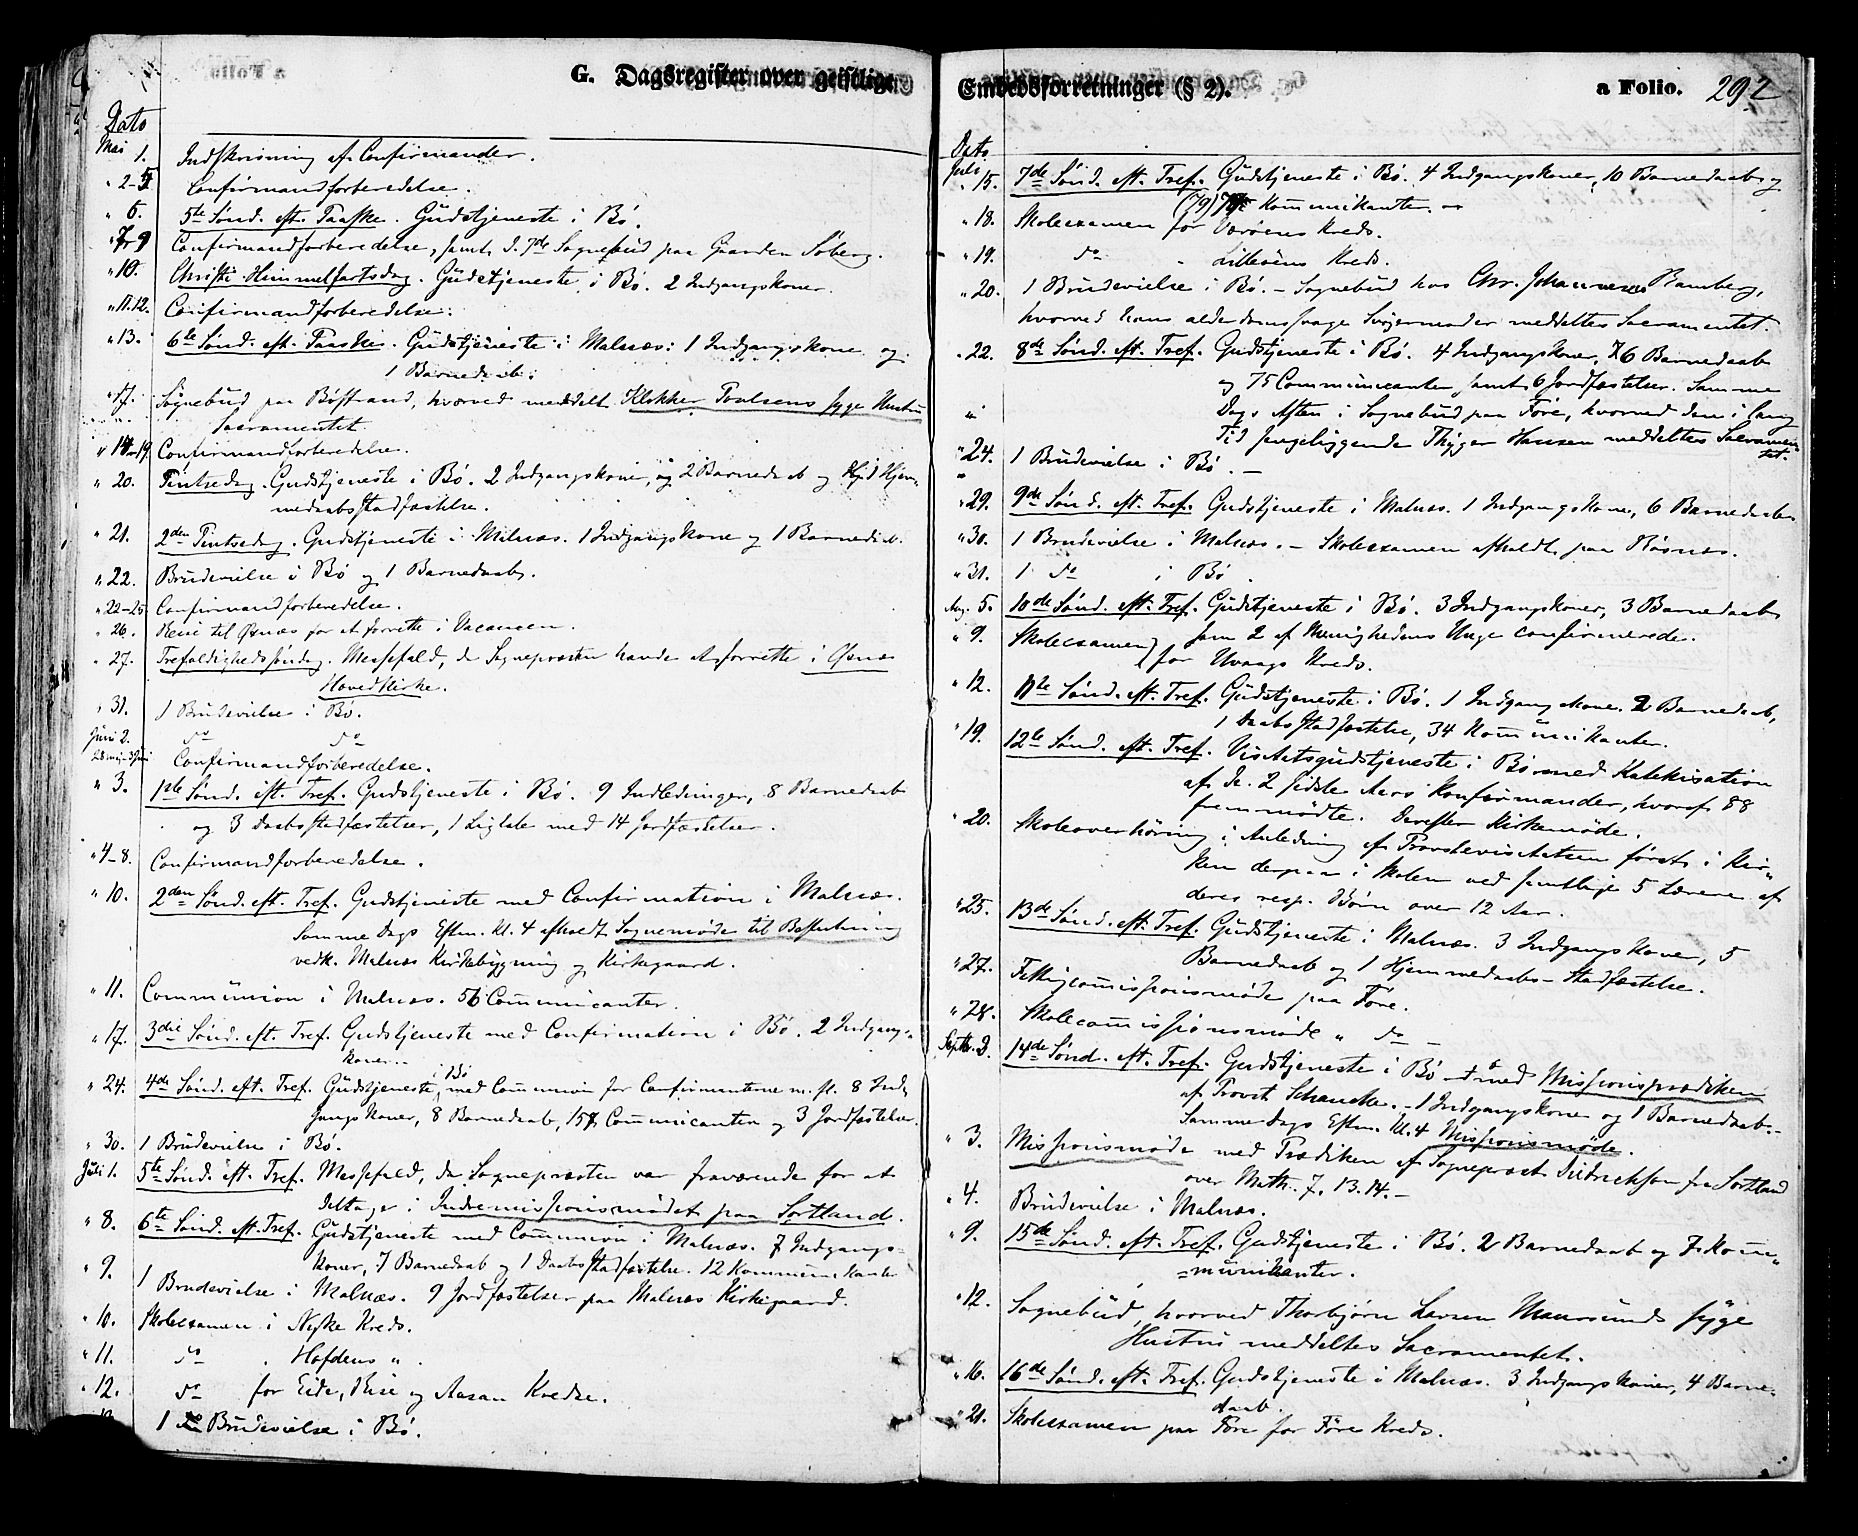 G. Dagsregister over geistlige
Dato
Mai 1. Indskrivning af Confirmander.
" 2-5. Confirmandforberedelse.
" 6. 5te Sønd. eft. Paaske. Gudstjeneste i Bø.
" 7, 9 Confirmandforberedelse, samt d. 7de Sognebud paa Gaarden Søberg.
" 10. Christi Himmelfartsdag. Gudstjeneste i Bø. 2 Indgangskoner.
" 11. 12. Confirmandforberedelse.
" 13. 6te Sønd. eft. Paaske. Gudstjeneste i Malnæs: 1 Indgangskone og
1 Barnedaab.
" 17. Sognebud paa Bøstrand, hvorved meddelt Klokker Poulsens syge Hustru
Sacramentet.
" 14-19. Confirmandforberedelse.
" 20. Pintsedag. Gudstjeneste i Bø. 2 Indgangskoner, og 2 Barnedaab og 1 Hjem-
medaabsstadfæstelse.
" 21. 2den Pintsedag. Gudstjeneste i Malnæs. 1 Indgangskone og 1 Barnedaab.
" 22. Brudevielse i Bø og 1 Barnedaab.
" 22-25 Confirmandforberedelse.
" 26. Reise til Øsnæs for at forrette i Vacancen.
" 27. Trefoldighedssøndag. Messefald, da Sognepræsten havde at forrette i Øsnæs
Hovedkirke.
" 31. 1 Brudevielse i Bø.
Juni 2. do do
28 mai-3 Juni Confirmandforberedelse.
" 3. 1ste Sønd. eft. Tref. Gudstjeneste i Bø. 9 Indledninger, 8 Barnedaab
og 3 Daabsstadfæstelser, 1 Ligtale med 14 Jordfæstelser.
" 4-8. Confirmandforberedelse.
" 10. 2den Sønd. eft. Tref. Gudstjeneste med Confirmation i Malnæs.
Samme Dags Efterm. Kl. 4 afholdt Sognemøde til Beslutning
vedk. Malnæs Kirkebygning og Kirkegaard.
" 11. Communion i Malnæs. 56 Communicanter.
" 17. 3die Sønd. eft. Tref. Gudstjeneste med Confirmation i Bø. 2 Indgangs-
koner.
" 24. 4de Sønd. eft. Tref. Gudstjeneste i Bø med Communion for Confirmanterne m. fl. 8 Ind-
gangskoner, 8 Barnedaab, 157 Communicanter og 3 Jordfæstelser.
" 30. 1 Brudevielse i Bø.
Juli 1. 5te Sønd. eft. Tref. Messefald, da Sognepræsten var fraværende for at
deltage i Indremissionsmødet paa Sortland.
" 8. 6te Sønd. eft. Tref. Gudstjeneste med Communion i Malnæs. 7 Indgangs-
koner, 7 Barnedaab og 1 Daabsstadfæstelse. 12 Kommunikanter
" 9. 1 Brudevielse i Malnæs. 9 Jordfæstelser paa Malnæs Kirkegaard.
" 10. Skolexamen i Nyke Kreds.
" 11. do . Hofdens " .
" 12. do for Eide, Risø og Aasan Kredse.
1 Brudevielse i Bø.
Embedsforretninger (§ 2). a Folio. 292
Dato
Juli
" 15. 7de Sønd. eft. Tref. Gudstjeneste i Bø. 4 Indgangskoner, 10 Barnedaab og
(79) Kommunikanter.
" 18. Skolexamen for Værøens Kreds.
" 19. do " Lilleøens Kreds.
" 20. 1 Brudevielse i Bø. - Sognebud hos Chr. Johannesen Ramberg,
hvorved hans alderdomssvage Svigermoder meddeltes Sacramentet.
" 22. 8de Sønd. eft. Tref. Gudstjeneste i Bø. 4 Indgangskoner, 6 Barnedaab
og 75 Communicanter samt 6 Jordfæstelser. Samme
Dags Aften i Sognebud paa Føre, hvorved den i lang
Tid sengeliggende Thyger Hansen meddeltes Sacramen-
tet.
" 24. 1 Brudevielse i Bø. -
" 29. 9de Sønd. eft. Tref. Gudstjeneste i Malnæs. 1 Indgangskone, 6 Barnedaab
" 30. 1 Brudevielse i Malnæs. - Skolexamen afholdt paa Røsnæs.
" 31. 1 do i Bø.
Aug. 5. 10de Sønd. eft. Tref. Gudstjeneste i Bø. 3 Indgangskoner, 3 Barnedaab
Som 2 af Menighedens Unge confirmerede.
" 9. Skolexamen for Uvaags Kreds.
" 12. 11te Sønd. eft. Tref. Gudstjeneste i Bø. 1 Indgangskone. 2 Barnedaab,
1 Daabsstadfæstelse, 34 Kommunikanter.
" 19. 12te Sønd. eft. Tref. Visitatsgudstjeneste i Bø med Katekisation
af de 2 sidste Aars Konfirmander, hvoraf 88
fremmødte. Derefter Kirkemøde.
" 20. Skoleoverhøring i Anledning af Provstevisitatsen først i Kir-
ken derpaa i Skolen ved samtlige 5 Lærere af
deres resp. Børn over 12 Aar.
" 25. 13de Sønd. eft. Tref. Gudstjeneste i Malnæs. 3 Indgangskoner, 5
Barnedaab og 1 Hjemmedaabs-Stadfæstelse.
" 27. Fattigcommissionsmøde paa Føre.
" 28. Skolecommissionsmøde " do -
Septbr. 2. 14de Sønd. eft. Tref. Gudstjeneste i Bø med Missionsprædiken
af Provst Schancke. - 1 Indgangskone og 1 Barnedaab.-
Samme Dags Efterm. Kl. 4 Missionsmøde.
" 3. Missionsmøde med Prædiken af Sognepræst Didricksen fra Sortland
over Math. 7. 13. 14. -
" 4. Brudevielse i Malnæs.
" 9. 15de Sønd. eft. Tref. Gudstjeneste i Bø. 2 Barnedaab og 7 Kom-
munikanter.
" 12. Sognebud, hvorved Thorbjørn Larsen Maursunds syge
Hustru meddeltes Sacramentet.
" 16. 16de Sønd. eft. Tref. Gudstjeneste i Malnæs. 3 Indgangskoner, 4 Barne-
daab.
" 21. Skolexamen paa Føre for Føre Kreds.